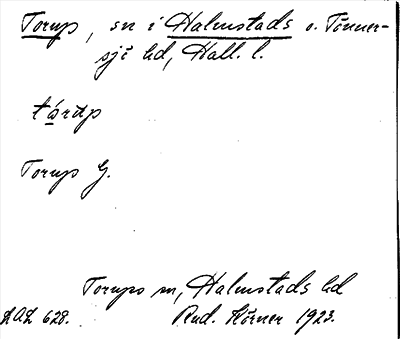 Torup, sn i Halmstads o. Tönner-
sjö hd, Hall. l.
tóràp
Torup G.
Torups sn, Halmstads hd
LAL 628. Rud. Körner 1923.